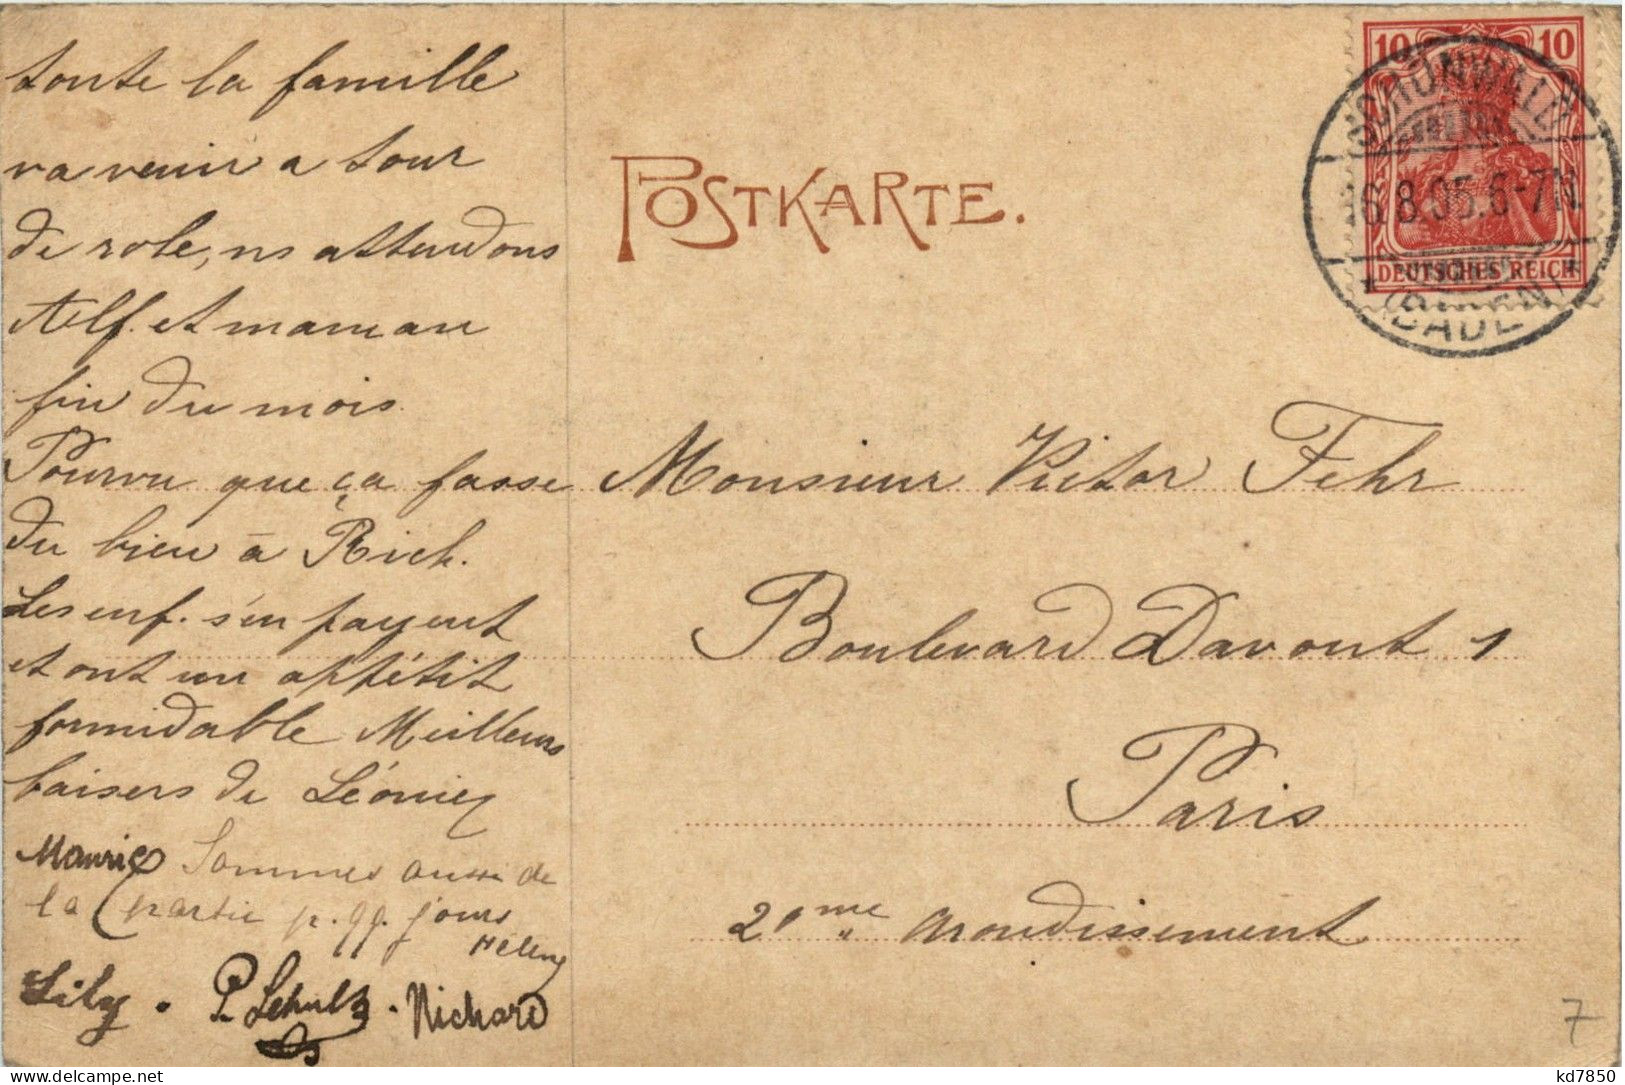 toute la famille
va venir a tour
de role, ns attendons
Alf. et maman
fin du mois.
Pourvu que ça fasse
du bien à Rich.
Les enf. s'en payent
et ont un appétit
formidable Meilleurs
baisers de Léonie
Maurice Sommes aussi de
la partie p. qq. jours
Hélène
Lily. P. Schultz. Richard
POSTKARTE.
10 10
DEUTSCHES REICH
SCHÖNWALD
6.8.05.6-7N.
* (BADEN) *
Monsieur Victor Fehr
Boulevard Davout 1
Paris
20me arrondissement
7
kd7850